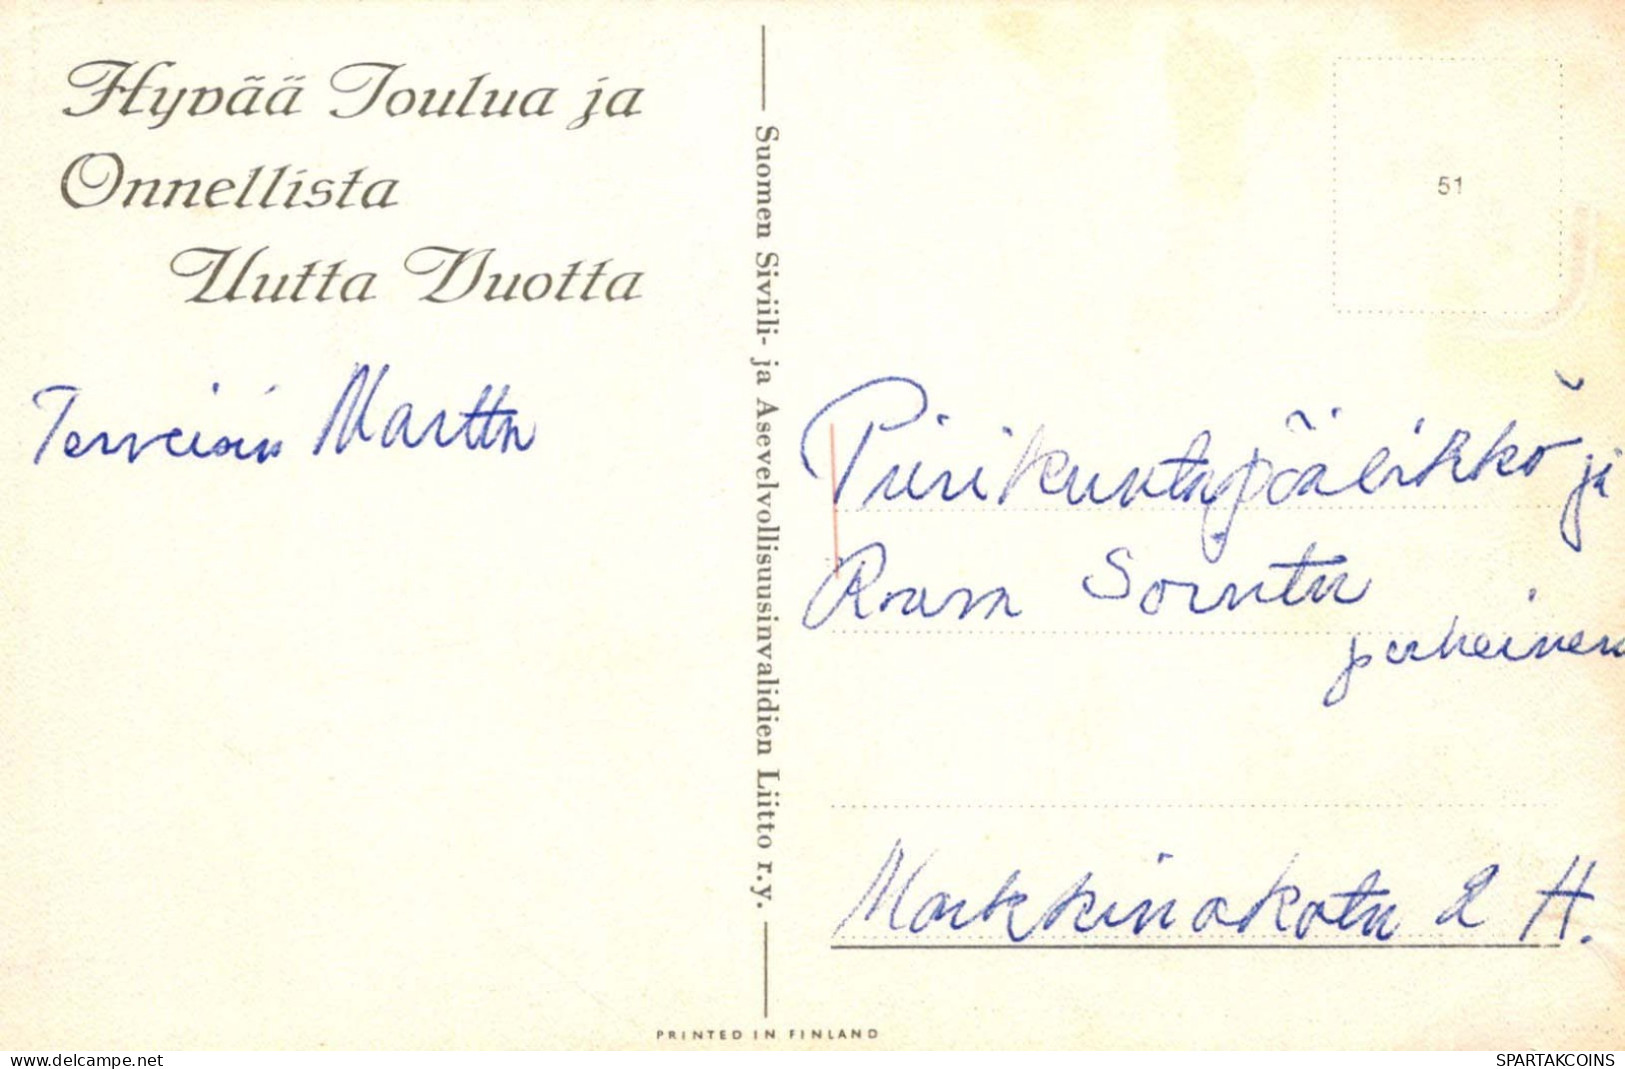 Hyvää Joulua ja
Onnellista
Uutta Vuotta
Terveisin Martta
Suomen Siviili- ja Asevelvollisuusinvalidien Liitto r.y.
51
Piirikuntapäälikkö ja
Rouva Sointu
perheineen
Markkinakatu 2 H.
PRINTED IN FINLAND
www.delcampe.net
SPARTAKCOINS